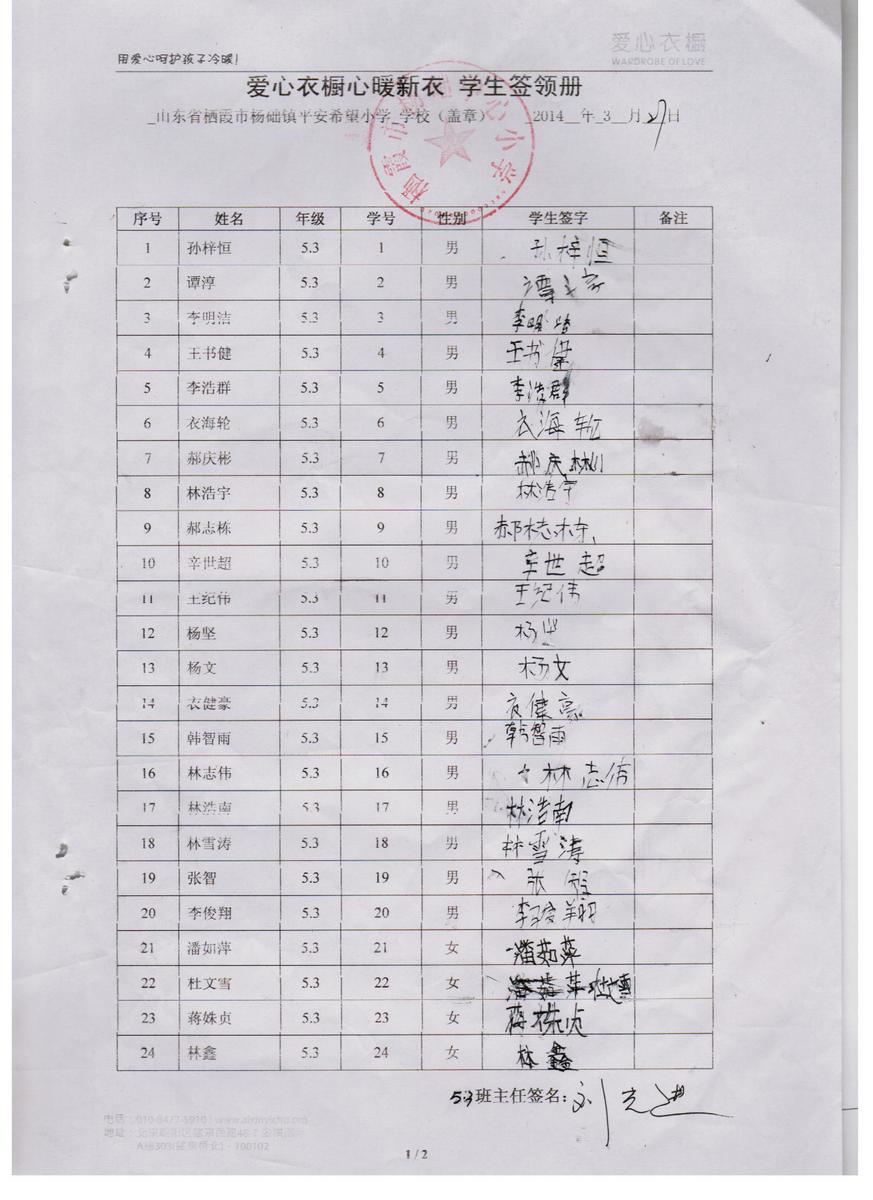 用爱心呵护孩子冷暖!
爱心衣橱
WARDROBE OF LOVE
爱心衣橱心暖新衣 学生签领册
_山东省栖霞市杨础镇平安希望小学_学校（盖章） 2014__年_3__月27日
序号 姓名 年级 学号 性别 学生签字 备注
1 孙梓恒 5.3 1 男 孙梓恒
2 谭淳 5.3 2 男 谭
3 李明洁 5.3 3 男 李明
4 王书健 5.3 4 男 王书健
5 李浩群 5.3 5 男 李浩群
6 衣海轮 5.3 6 男 衣海轮
7 郝庆彬 5.3 7 男 郝庆彬
8 林浩宇 5.3 8 男 林浩宇
9 郝志栋 5.3 9 男 郝志栋
10 辛世超 5.3 10 男 辛世超
11 王纪伟 5.3 11 男 王纪伟
12 杨坚 5.3 12 男 杨坚
13 杨文 5.3 13 男 杨文
14 衣健豪 5.3 14 男 衣健豪
15 韩智雨 5.3 15 男 韩智雨
16 林志伟 5.3 16 男 林志伟
17 林浩南 5.3 17 男 林浩南
18 林雪涛 5.3 18 男 林雪涛
19 张智 5.3 19 男 张
20 李俊翔 5.3 20 男 李俊翔
21 潘如萍 5.3 21 女 潘茹萍
22 杜文雪 5.3 22 女 杜文雪
23 蒋姝贞 5.3 23 女 蒋姝贞
24 林鑫 5.3 24 女 林鑫
53班主任签名: 刘志进
电话：010-8477-5910 | www.aixinyichu.org
A座303(望京桥北)·100102
1 / 2